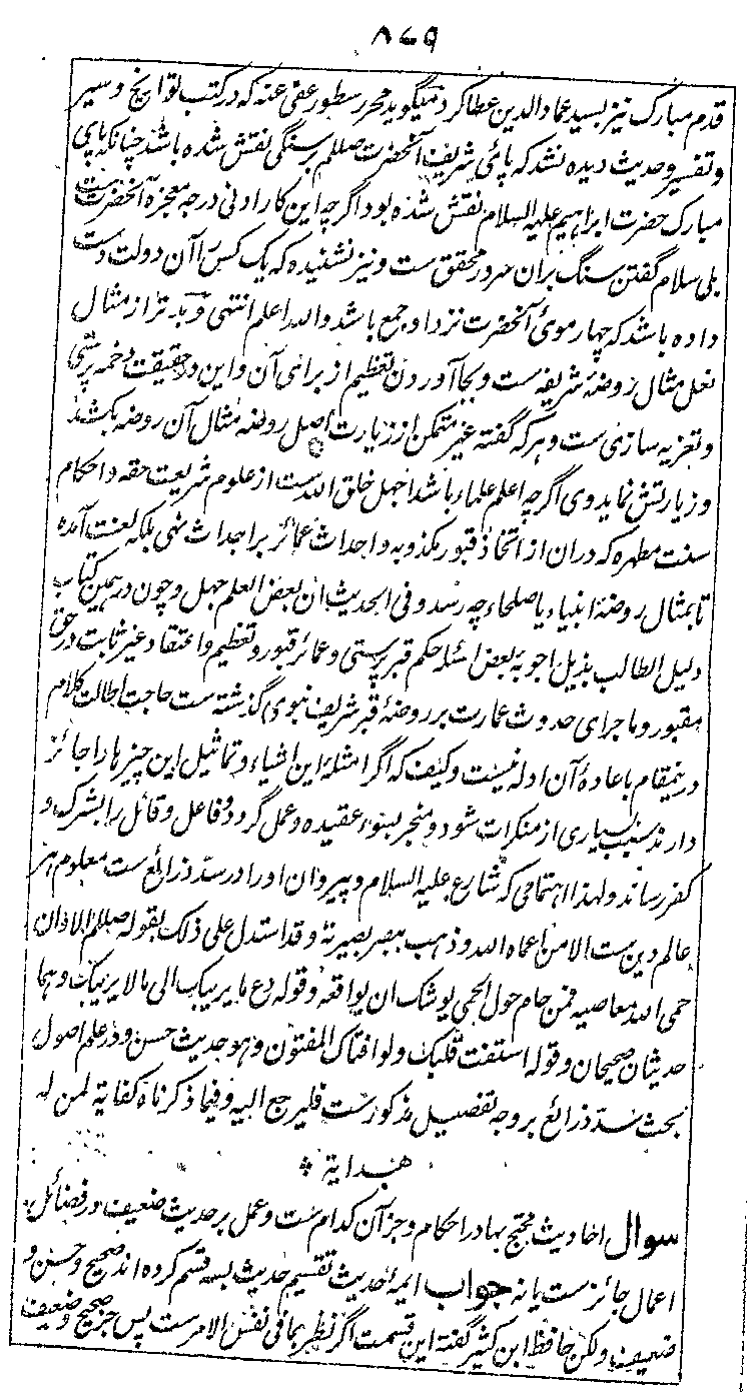 ۸۶۹
قدم مبارک نیز بسید عماد الدین عطا کرد میگوید محرر سطور عفی عنه که در کتب تواریخ و سیر
و تفسیر و حدیث دیده نشد که پائی شریف آنحضرت صللم بر سنگی نقش شده باشد چنانکه پای
مبارک حضرت ابراہیم علیہ السلام نقش شده بود اگرچه این کار ادنی درجه معجزه آنحضرت ست
بلی سلام گفتن سنگ بران سرور محقق ست و نیز نشنیده که یک کس را آن دولت دست
داده باشد که چهار موئی آنحضرت نزد او جمع باشد والله اعلم انتهی و بدتر از مثال
نعل مثال روضۂ شریفه ست و بجا آوردن تعظیم از برای آن و این در حقیقت دخمه پرستی
و تعزیه سازی ست و هر که گفته غیر متمکن از زیارت اصل روضه مثال آن روضه بکشد
و زیارتش نماید وی اگرچه اعلم علماء باشد اجهل خلق الله ست از علوم شریعت حقه و احکام
سنت مطهره که دران از اتخاذ قبور مکذوبه و احداث عمائر بر اجداث نهی بلکه لعنت آمده
تا بمثال روضۂ انبیاء یا صلحاء چه رسد وفی الحدیث ان بعض العلم جهل و چون در همین کتاب
دلیل الطالب بذیل اجوبۂ بعض اسئله حکم قبر پرستی و عمائر قبور و تعظیم و اعتقاد غیر ثابت در حق
مقبور و ماجرای حدوث عمارت بر روضۂ قبر شریف نبوی گذشته ست حاجت اطالت کلام
درینمقام باعادۂ آن ادله نیست و کیف که اگر امثلۂ این اشیاء و تماثیل این چیزها را جائز
دارند سبب بسیاری از منکرات شود و منجر بسوء عقیده و عمل گردد و فاعل و قائل را بشرک و
کفر رساند و لهذا اهتمامی که شارع علیه السلام و پیروان او را در سد ذرائع ست معلوم هر
عالم دین ست الا من اعماه الله و ذهب ببصر بصیرته و قد استدل علی ذلک بقوله صللم الا و ان
حمی الله معاصیه فمن حام حول الحمی یوشک ان یواقعه و قوله دع ما یریبک الی ما لا یریبک وهما
حدیثان صحیحان و قوله استفت قلبک ولو افتاک المفتون وهو حدیث حسن و در علم اصول
بحث سد ذرائع بر وجه تفصیل مذکورست فلیرجع الیه و فیما ذکرناه کفایة لمن له
هدایة
سوال احادیث محتج بها در احکام و جز آن کدام ست و عمل بر حدیث ضعیف در فضائل
اعمال جائز ست یا نه جواب ایمۂ حدیث تقسیم حدیث بسه قسم کرده اند صحیح و حسن و
ضعیف و لکن حافظ ابن کثیر گفته این قسمت اگر نظر بما فی نفس الامر ست پس جز صحیح و ضعیف